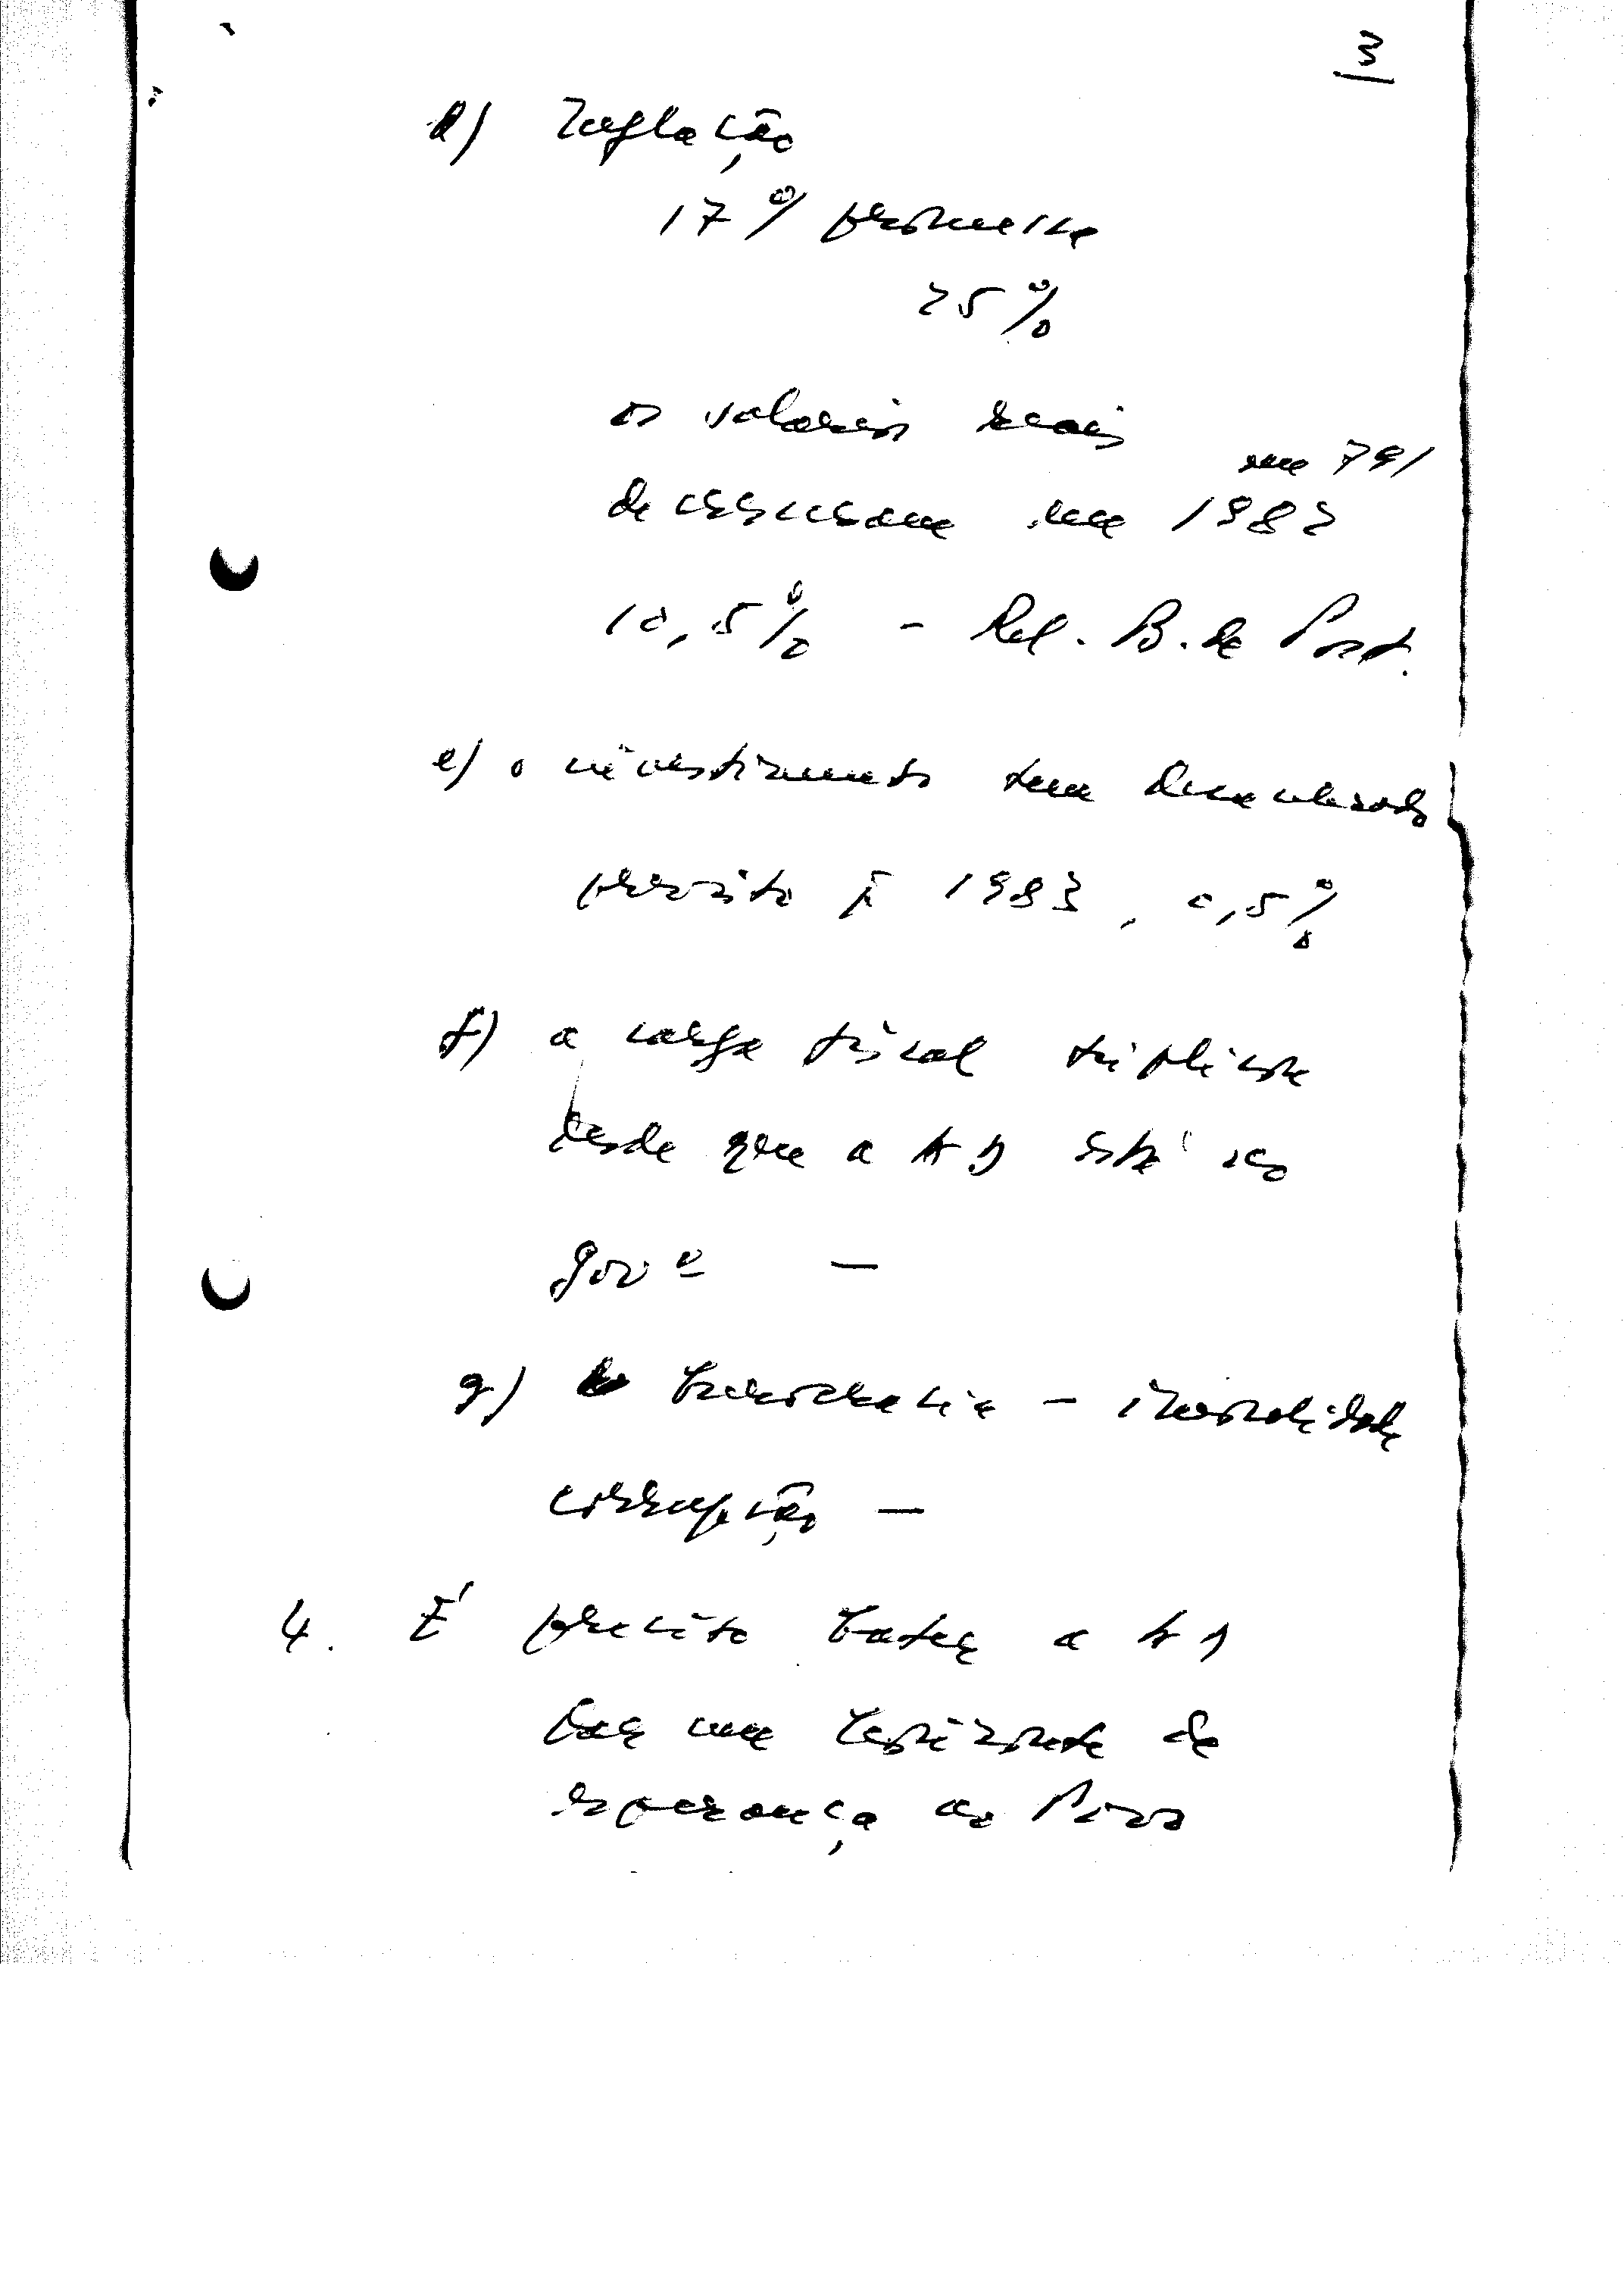 3
d) Inflação
17% promessa
25%
os salários reais
em 79/
decresceram em 1982
10,5% - Rel. B. de Port.
e) o investimento tem
previsto p. 1983, 0,5%
f) a carga fiscal triplicou
desde que a AD está no
govº —
g) burocracia - imoralidade
corrupção —
4. É preciso bater a AD
dar um de
esperança ao Povo